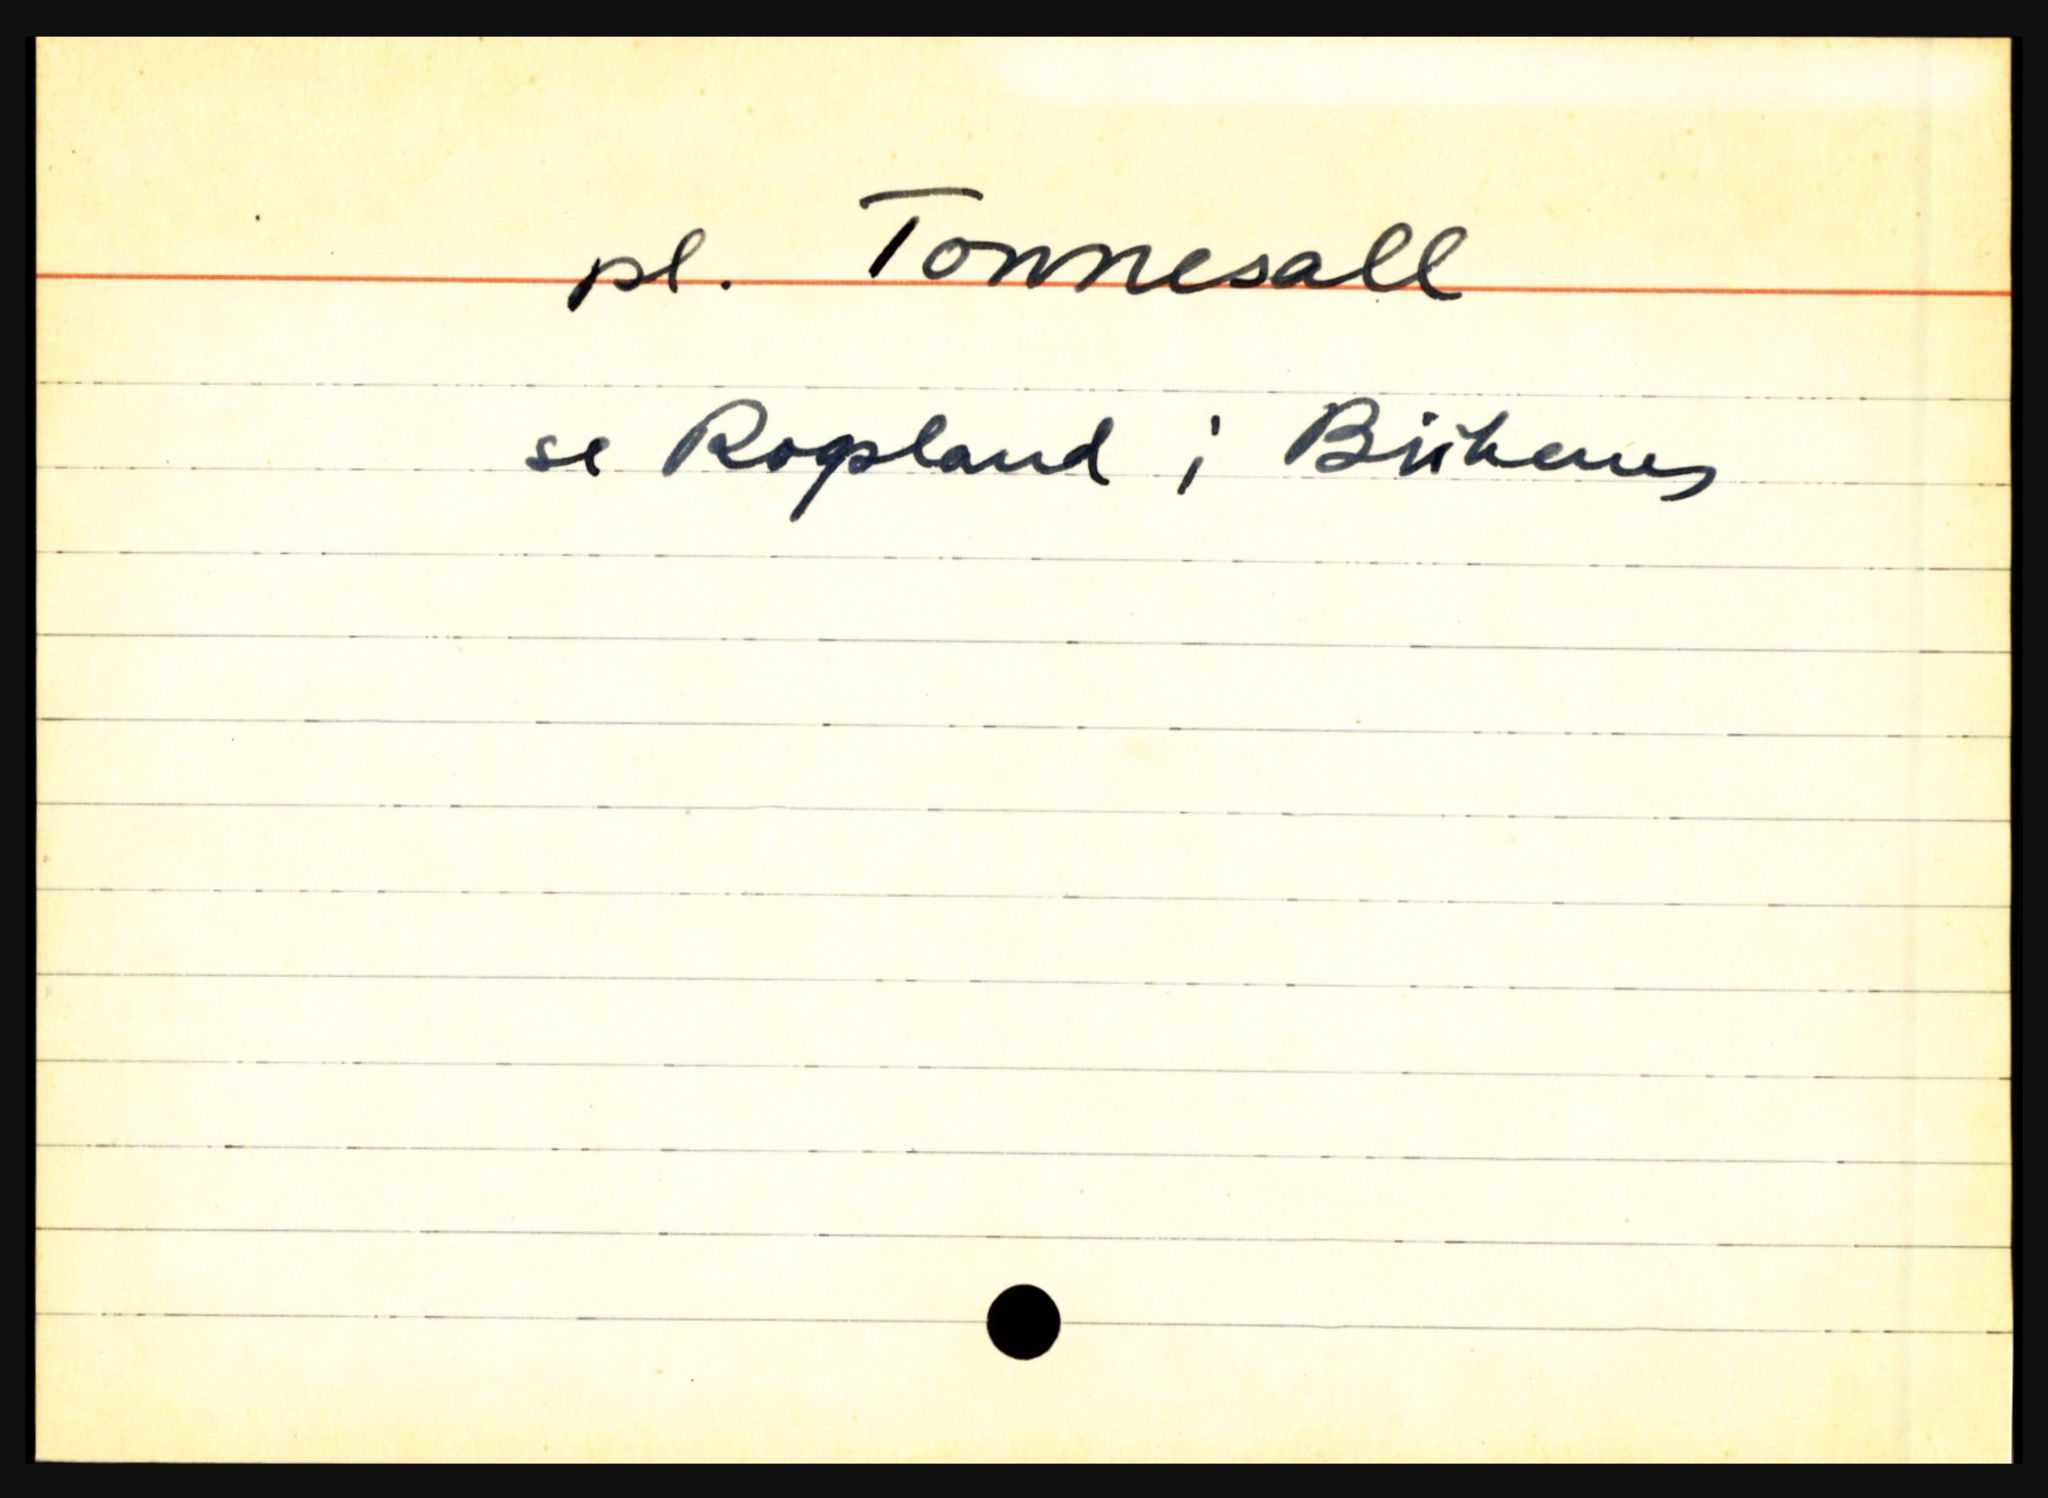 pl. Tonnesall
se Rogsland i Birkenes